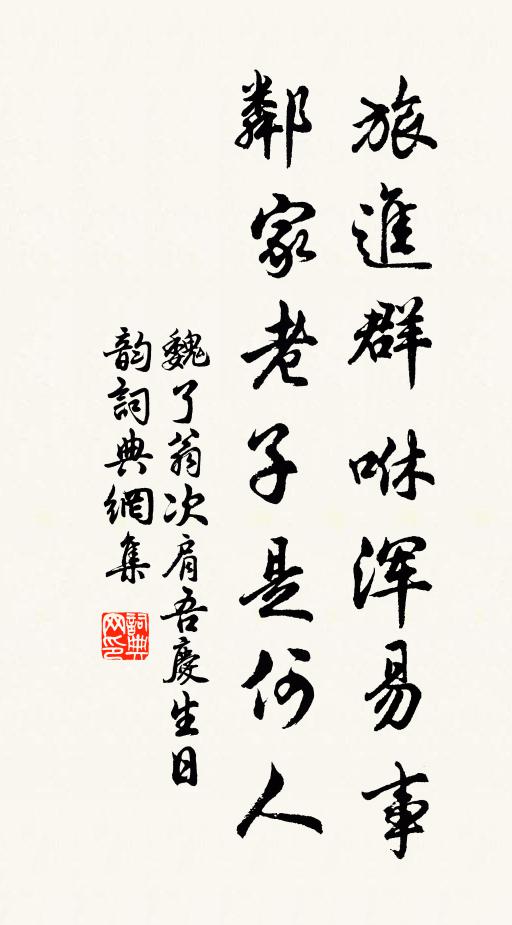 旅進群咻渾易事
鄰家老子是何人
魏了翁次肩吾慶生日
韵詞典網集
詞典
网印